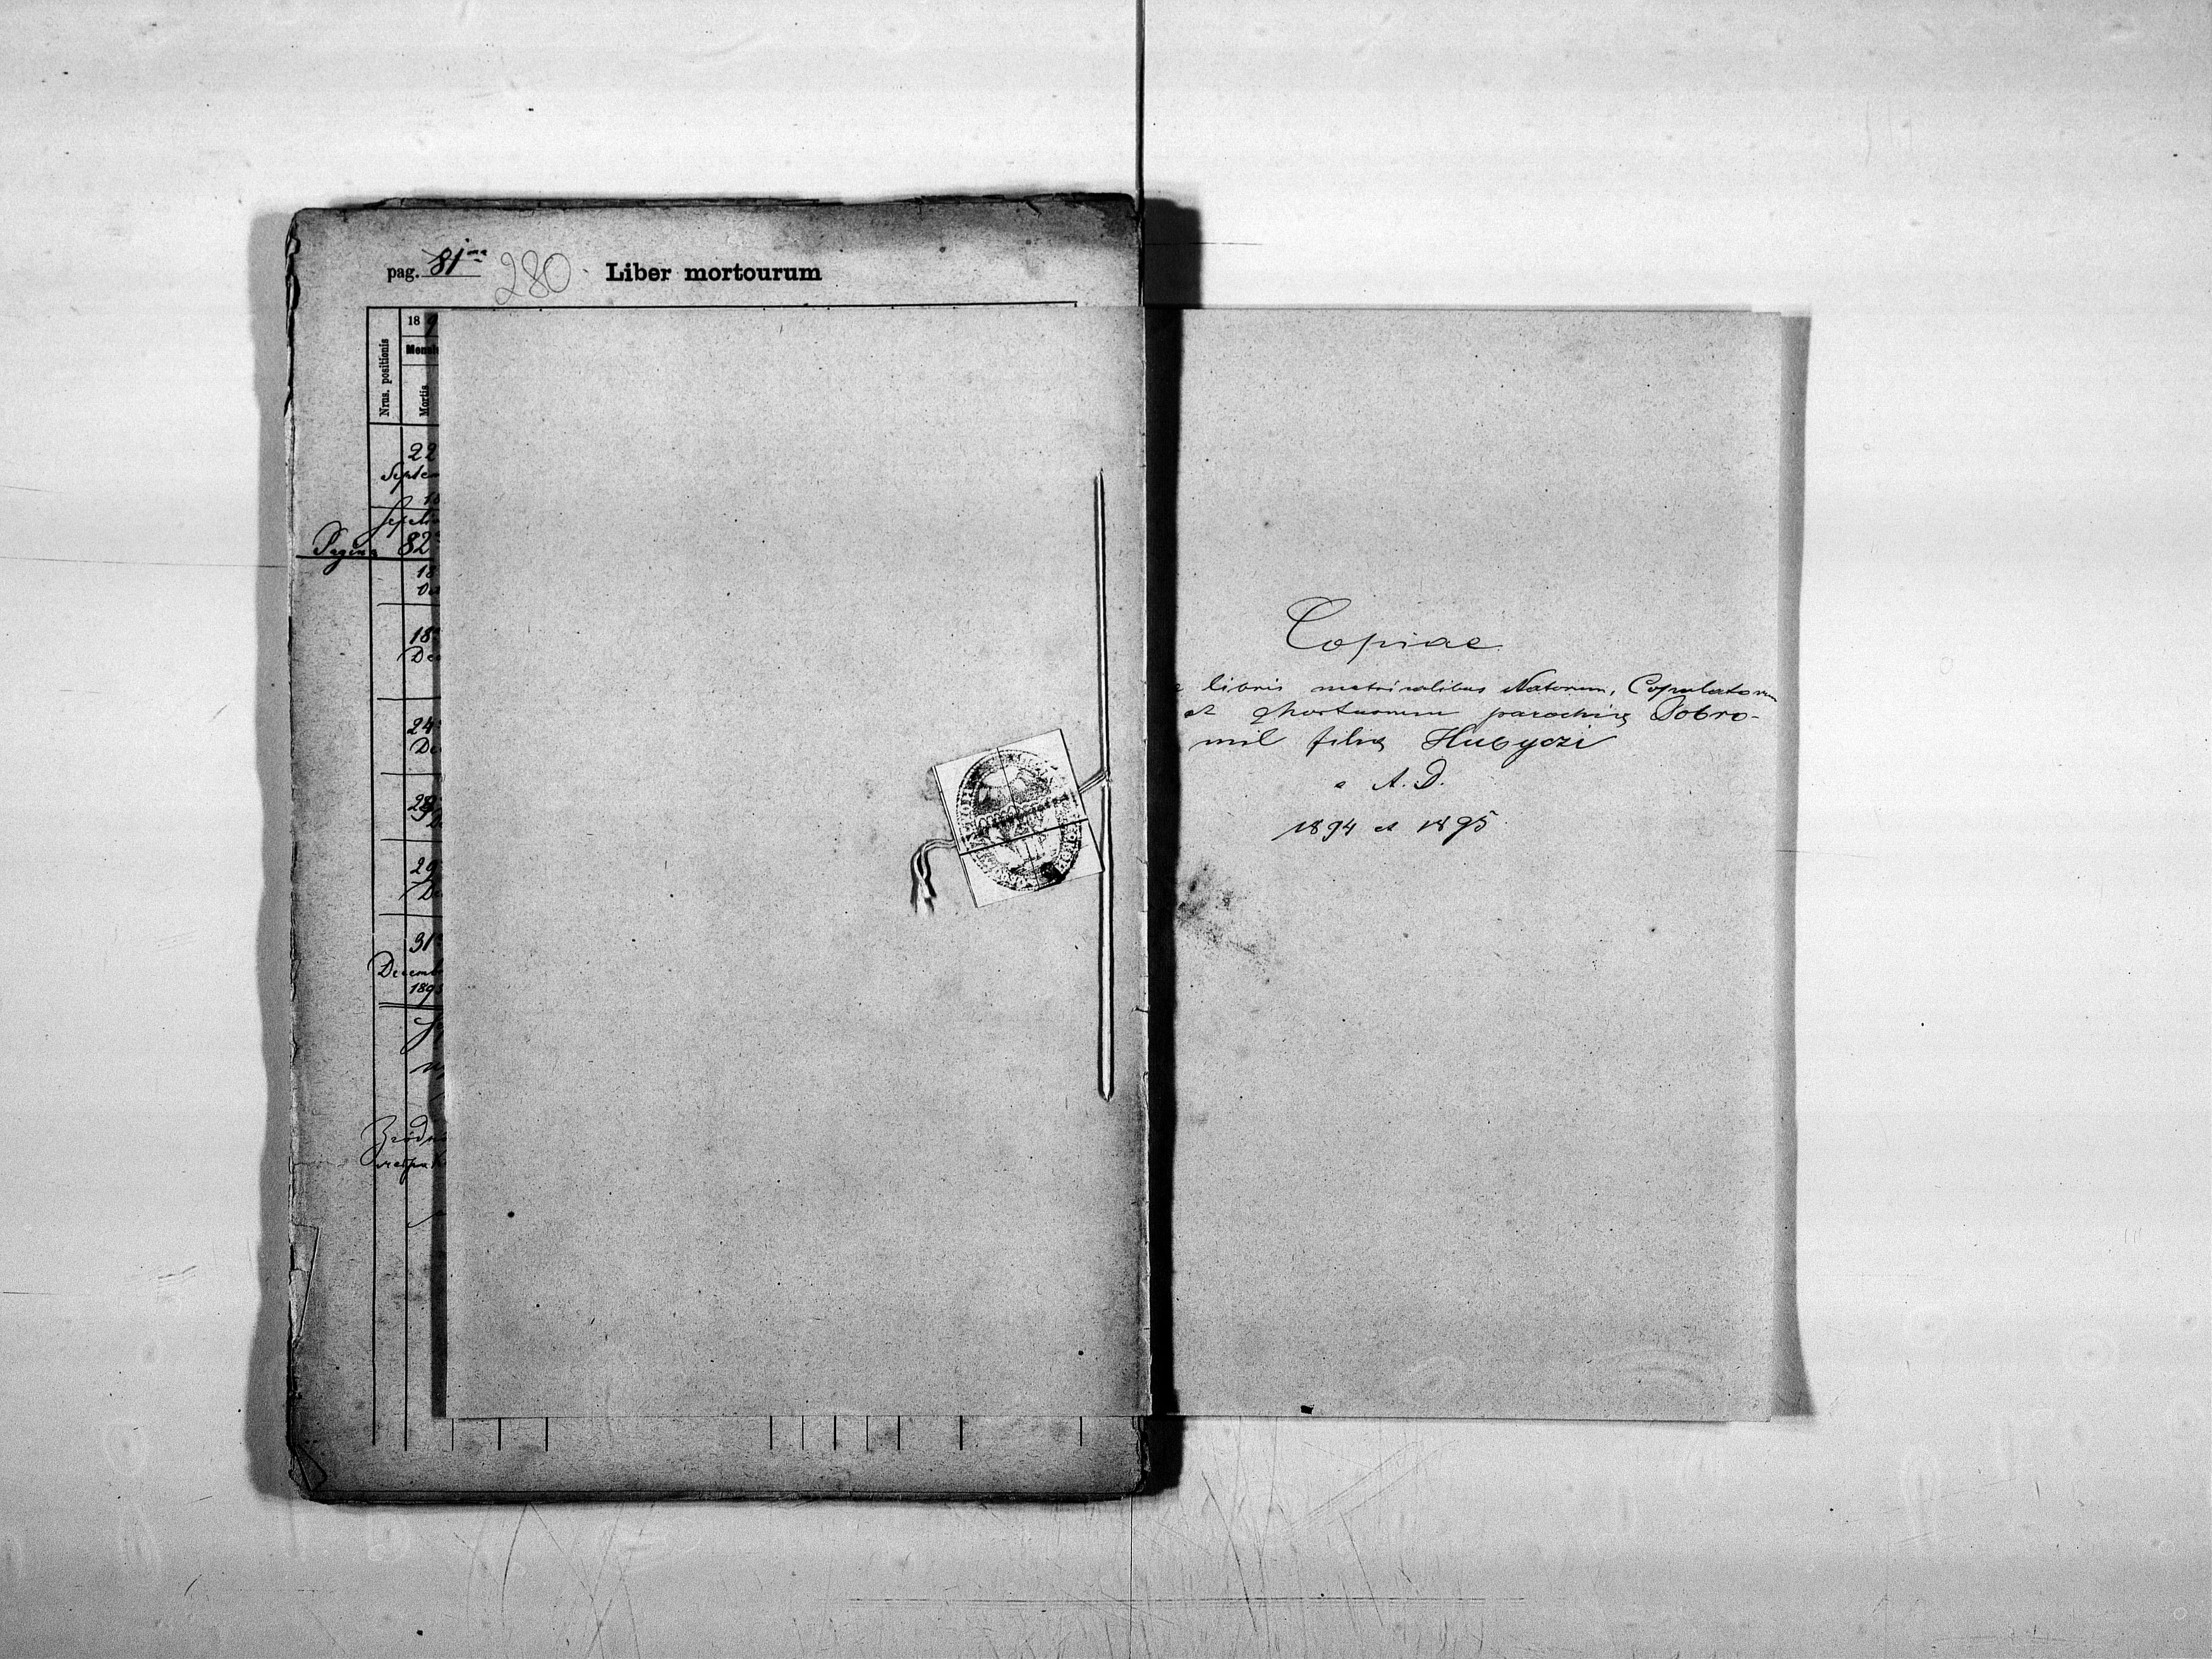 pag. 81ma 280 Liber mortourum
18 9
Mensis
Nrus. positionis
Mortis
22
Septem
18
Septem
Pagina 82
18
Oct
18
Dec
24
De
28
De
29
De
31
Decemb
1895
Copiae
e libris metricalibus Natorum, Copulatorum
et Mortuorum parochię Dobro-
mil filię Hubyczi
a A. D.
1894 et 1895